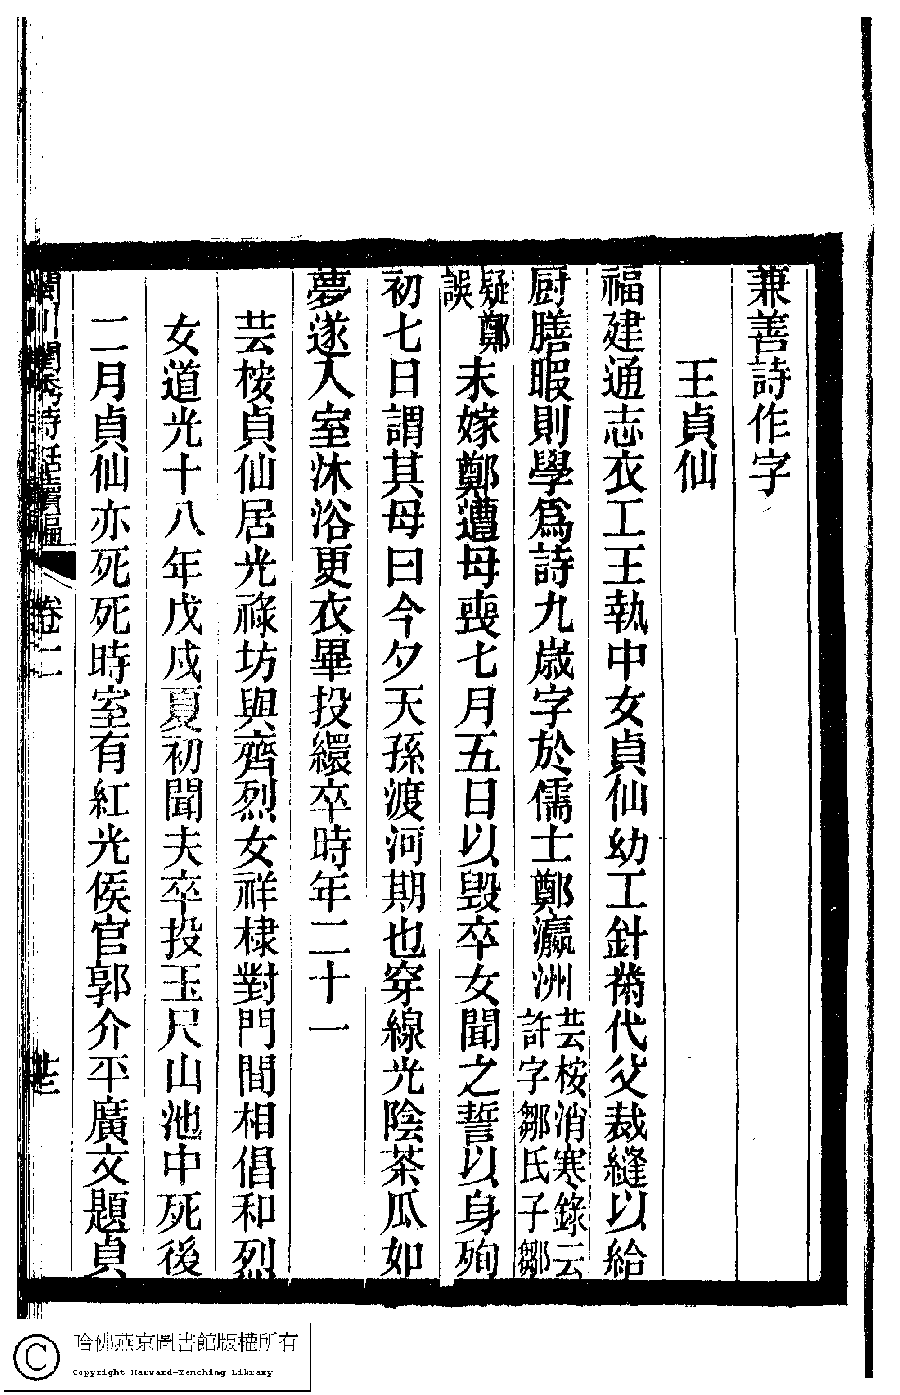 兼善詩作字
王貞仙
福建通志衣工王執中女貞仙幼工針黹代父裁縫以給
厨膳暇則學爲詩九歲字於儒士鄭瀛洲芸桉消寒錄云許字鄒氏子鄒
疑鄭誤未嫁鄭遭母喪七月五日以毀卒女聞之誓以身殉
初七日謂其母曰今夕天孫渡河期也穿線光陰茶瓜如
夢遂入室沐浴更衣畢投繯卒時年二十一
芸桉貞仙居光祿坊與齊烈女祥棣對門閒相倡和烈
女道光十八年戊戌夏初聞夫卒投玉尺山池中死後
二月貞仙亦死死時室有紅光侯官郭介平廣文題貞
閩川閨秀詩話續編 卷二
哈佛燕京圖書館版權所有
Copyright Harvard-Yenching Library